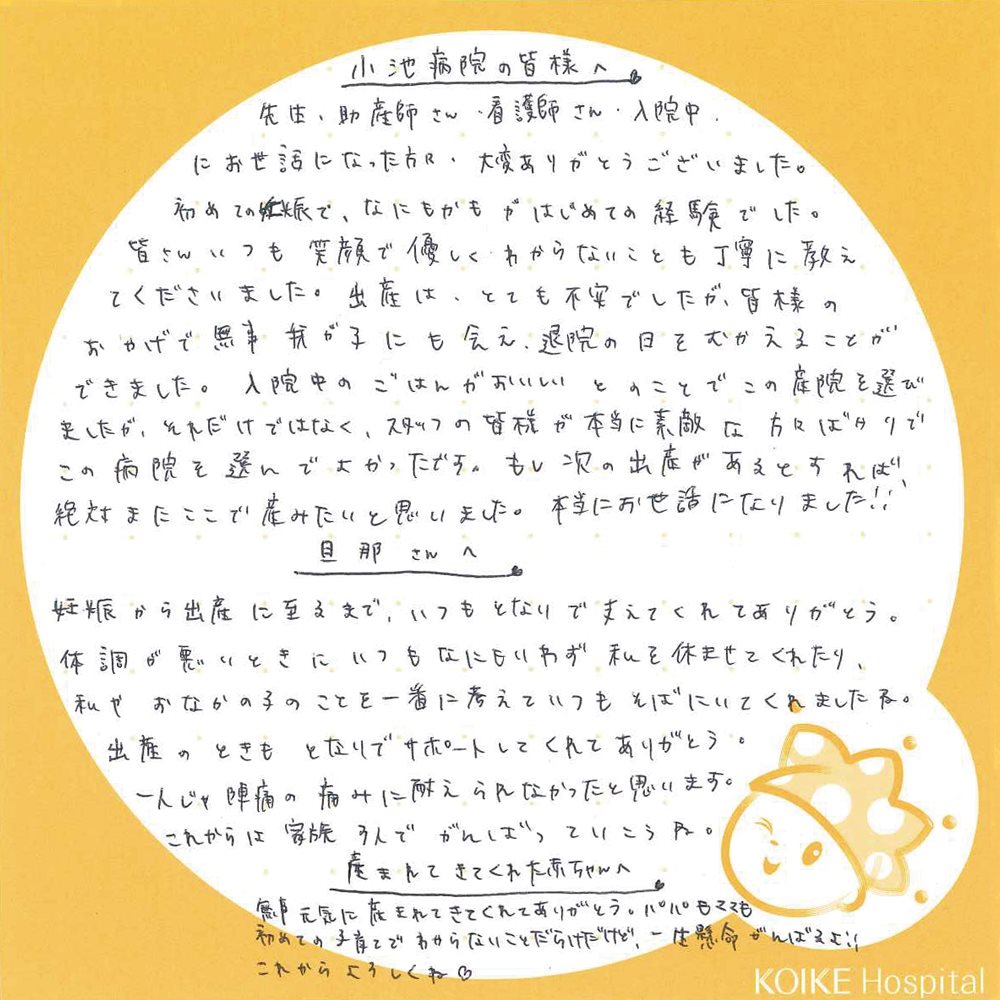 小池病院の皆様へ
先生、助産師さん・看護師さん・入院中、
にお世話になった方々、大変ありがとうございました。
初めての妊娠で、なにもかもがはじめての経験でした。
皆さんいつも笑顔で優しくわからないことも丁寧に教え
てくださいました。出産は、とても不安でしたが、皆様の
おかげで無事我が子にも会え、退院の日をむかえることが
できました。入院中のごはんがおいしいとのことでこの産院を選び
ましたが、それだけではなく、スタッフの皆様が本当に素敵な方々ばかりで
この病院を選んでよかったです。もし次の出産があるとすれば
絶対またここで産みたいと思いました。本当にお世話になりました!!
旦那さんへ
妊娠から出産に至るまで、いつもとなりで支えてくれてありがとう。
体調が悪いときにいつもなにもいわず私を休ませてくれたり、
私やおなかの子のことを一番に考えていつもそばにいてくれましたね。
出産のときもとなりでサポートしてくれてありがとう。
一人じゃ陣痛の痛みに耐えられなかったと思います。
これからは家族3人でがんばっていこうね。
産まれてきてくれた赤ちゃんへ
無事元気に産まれてきてくれてありがとう。パパもママも
初めての子育てでわからないことだらけだけど、一生懸命がんばるよ!!
これからよろしくね♡
KOIKE Hospital